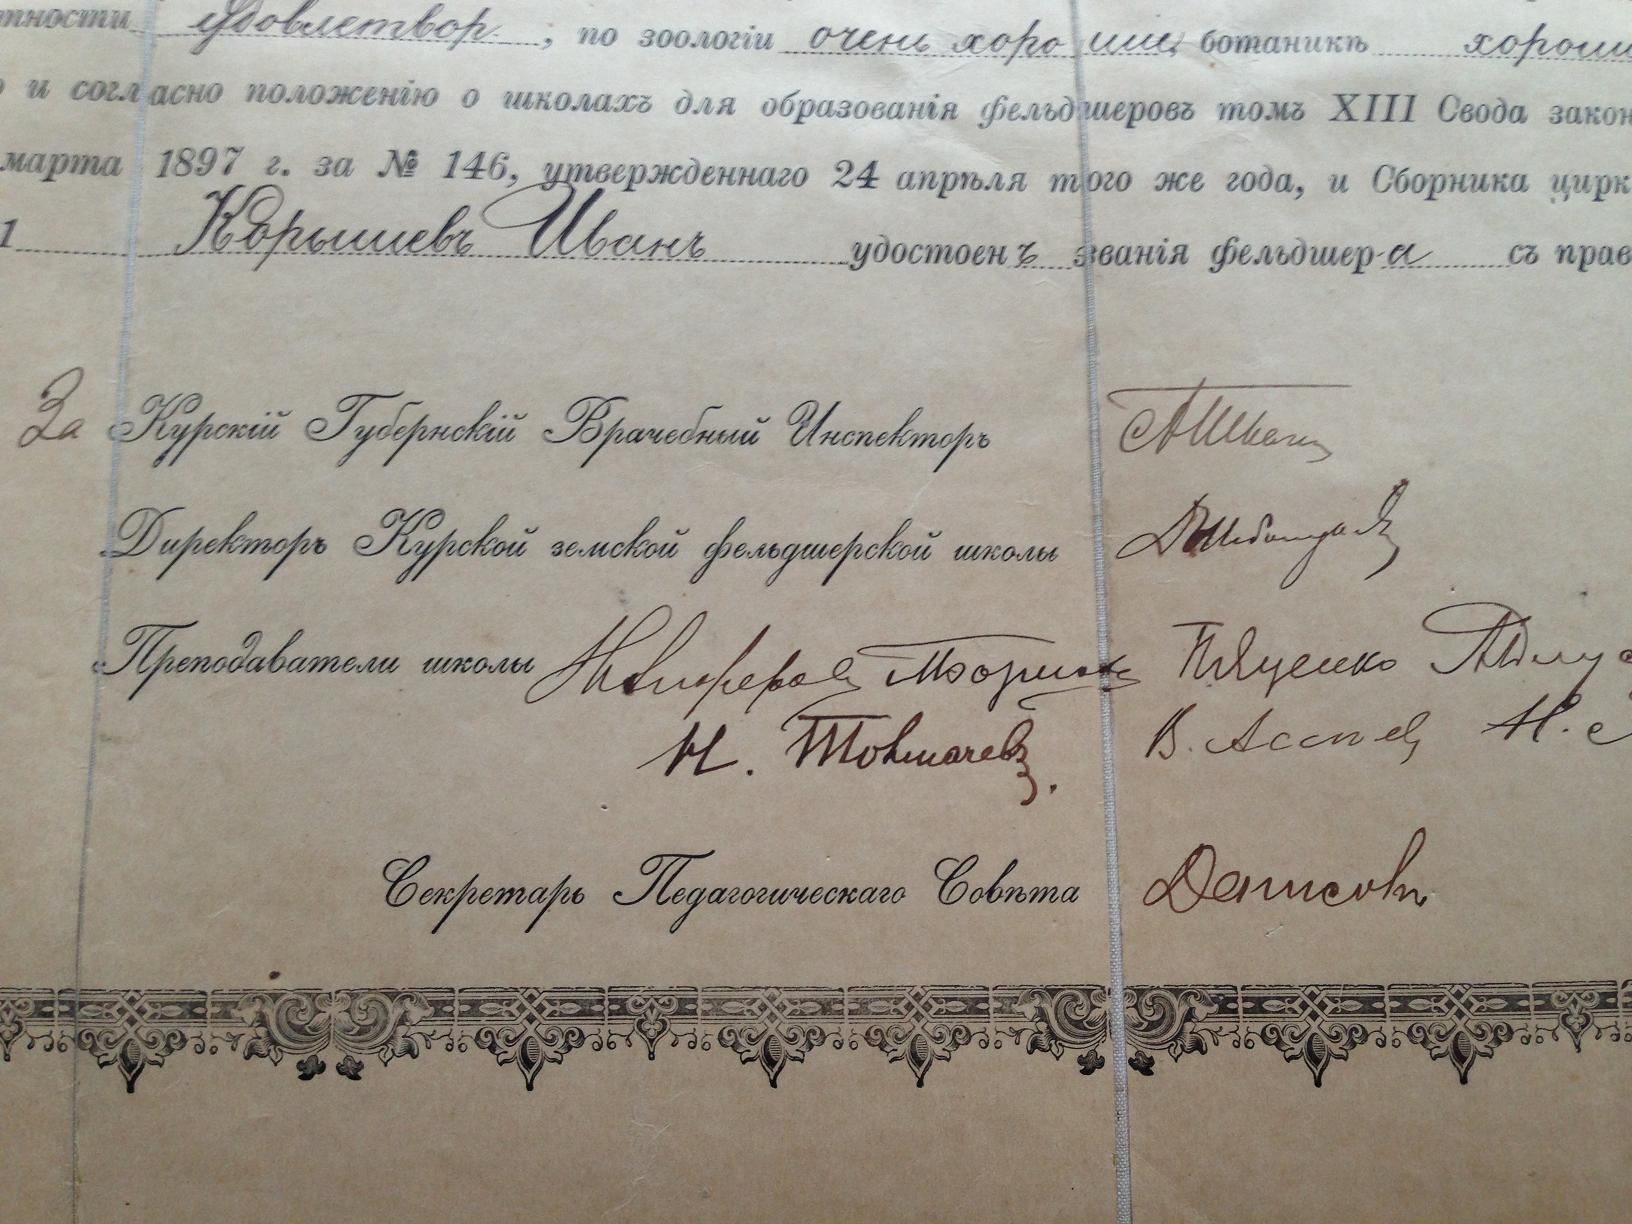 тности удовлетвор. , по зоологіи очень хорошіе, ботаникѣ хорош
и согласно положенію о школахъ для образованія фельдшеровъ томъ XIII Свода закон
марта 1897 г. за № 146, утвержденнаго 24 апрѣля того же года, и Сборника цирк
1 Корышевъ Иванъ удостоенъ званія фельдшер-а съ прав
За Курскій Губернскій Врачебный Инспекторъ
Директоръ Курской земской фельдшерской школы
Преподаватели школы Никифоровъ
Н. Толмачевъ. В.
Секретарь Педагогическаго Совѣта Денисовъ